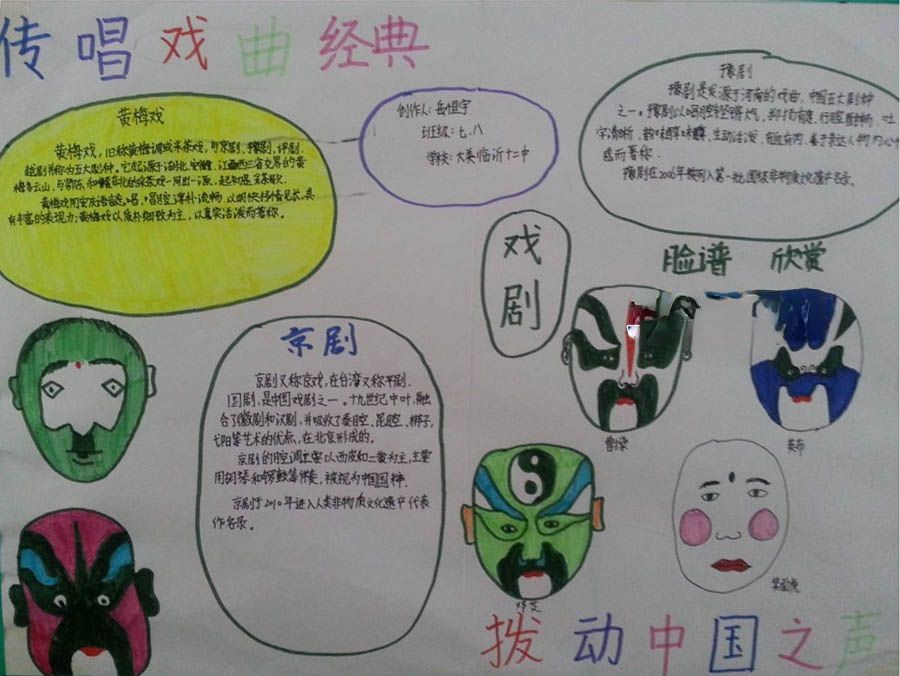 传唱戏曲经典
黄梅戏
黄梅戏，旧称黄梅调或采茶戏，与京剧、豫剧、评剧、
越剧并称为五大剧种。它起源于湖北、安徽、江西三省交界的黄
梅多云山，与鄂东和赣东北的采茶戏同出一源，
黄梅戏用安庆语言念唱，唱腔淳朴流畅，以明快抒情见长，具
有丰富的表现力；黄梅戏以质朴细致为主，以真实活泼而著称。
创作人：岳恒宇
班级：七、八
学校：大美临沂十二中
豫剧
豫剧是发源于河南的戏曲，中国五大剧种
之一。豫剧以唱腔铿锵大气、抑扬有度、行腔酣畅、吐
字清晰、韵味醇、生动活泼、有血有肉、善于表达人物内心
感而著称
豫剧在2006年被列入第一批国家级非物质文化遗产名录。
戏剧
脸谱 欣赏
京剧
京剧又称京戏，在台湾又称平剧．
国剧，是中国戏剧之一。十九世纪中叶，融
合了徽剧和汉剧，并吸收了秦腔、昆腔、梆子、
弋阳等艺术的优点，在北京形成的。
京剧的腔调主要以西皮和二黄为主，主要
用胡琴和锣鼓等伴奏，被视为中国国粹．
京剧于2010年进入人类非物质文化遗产代表
作名录。
英布
拨动中国之声